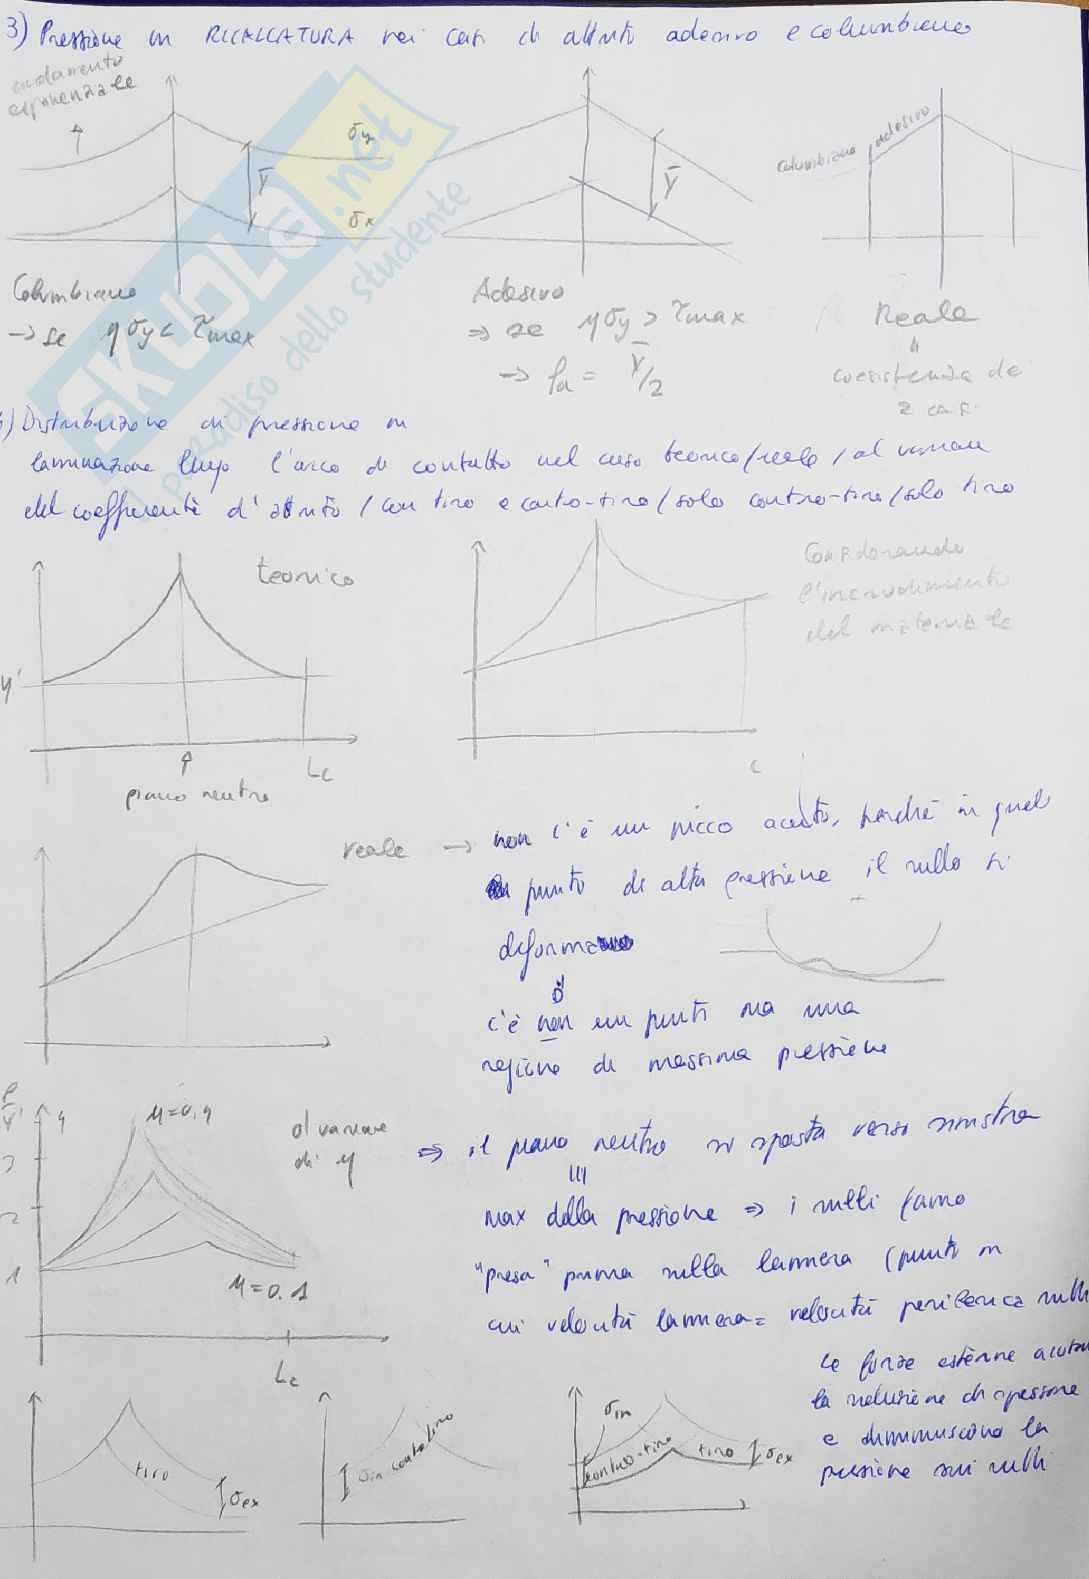 3) Pressione in RICALCATURA nei casi di attrito adesivo e columbiano
andamento
esponenziale
σy
Y
σx
Y
columbiano adesivo
SKUOLA.net
il paradiso dello studente
Columbiano
→ se μσy < τmax
Adesivo
⇒ se μσy > τmax
→ fa = Y/2
Reale
coesistenza dei
2 casi
) Distribuzione di pressione in
laminazione lungo l'arco di contatto nel caso teorico/reale/al variare
del coefficiente d'attrito/con tiro e contro-tiro/solo contro-tiro/solo tiro
teorico
Y'
Lc
piano neutro
Considerando
l'incrudimento
del materiale
reale → non c'è un picco acuto, perché in quel
punto di alta pressione il rullo si
deforma
c'è non un punto ma una
regione di massima pressione
P
Y'
4
3
2
1
μ=0.4
μ=0.1
Lc
al variare
di μ
⇒ il piano neutro si sposta verso sinistra
max della pressione ⇒ i rulli fanno
"presa" prima sulla lamiera (punto in
cui velocità lamiera = velocità periferica rulli
tiro
σex
σin controtiro
σin
contro-tiro
tiro
σex
Le forze esterne aiutano
la riduzione di spessore
e diminuiscono la
pressione sui rulli